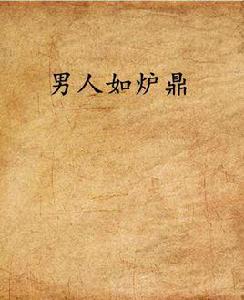 男人如炉鼎